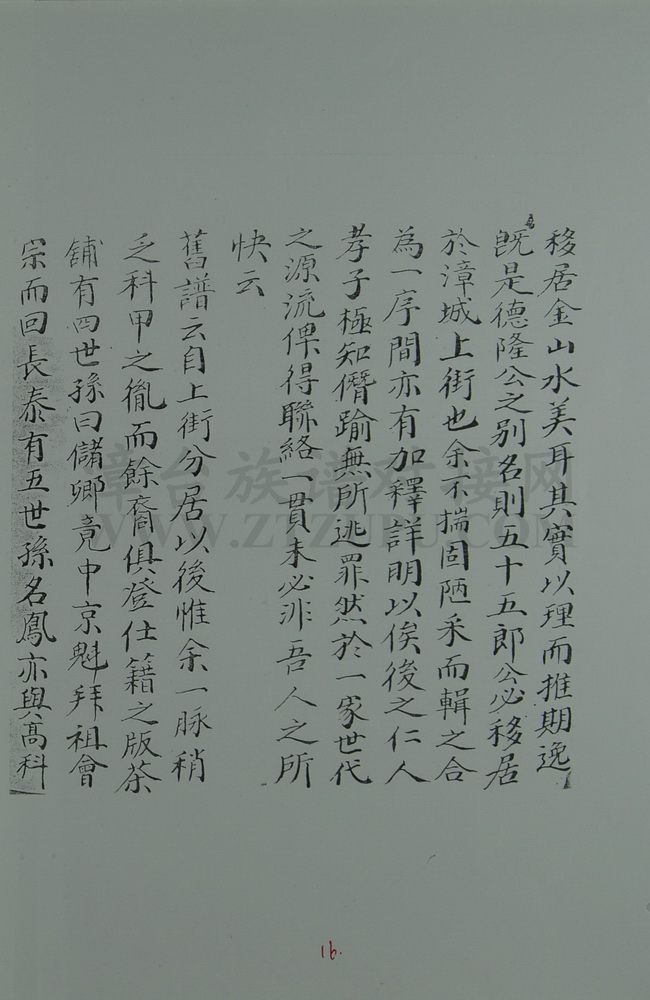 移居金山水美耳其實以理而推期逸
既是德隆公之别名則五十五郎公必移居
於漳城上街也余不揣固陋采而輯之合
為一序間亦有加釋詳明以俟後之仁人
孝子極知僭踰無所逃罪然於一家世代
之源流俾得聯絡一貫未必非吾人之所
快云
舊譜云自上街分居以後惟余一脉稍
乏科甲之胤而餘裔俱登仕籍之版茶
舖有四世孫曰儲卿竟中京魁拜祖會
宗而回長泰有五世孫名鳳亦與高科
漳台族谱对接网
WWW.ZTZUPU.COM
16.